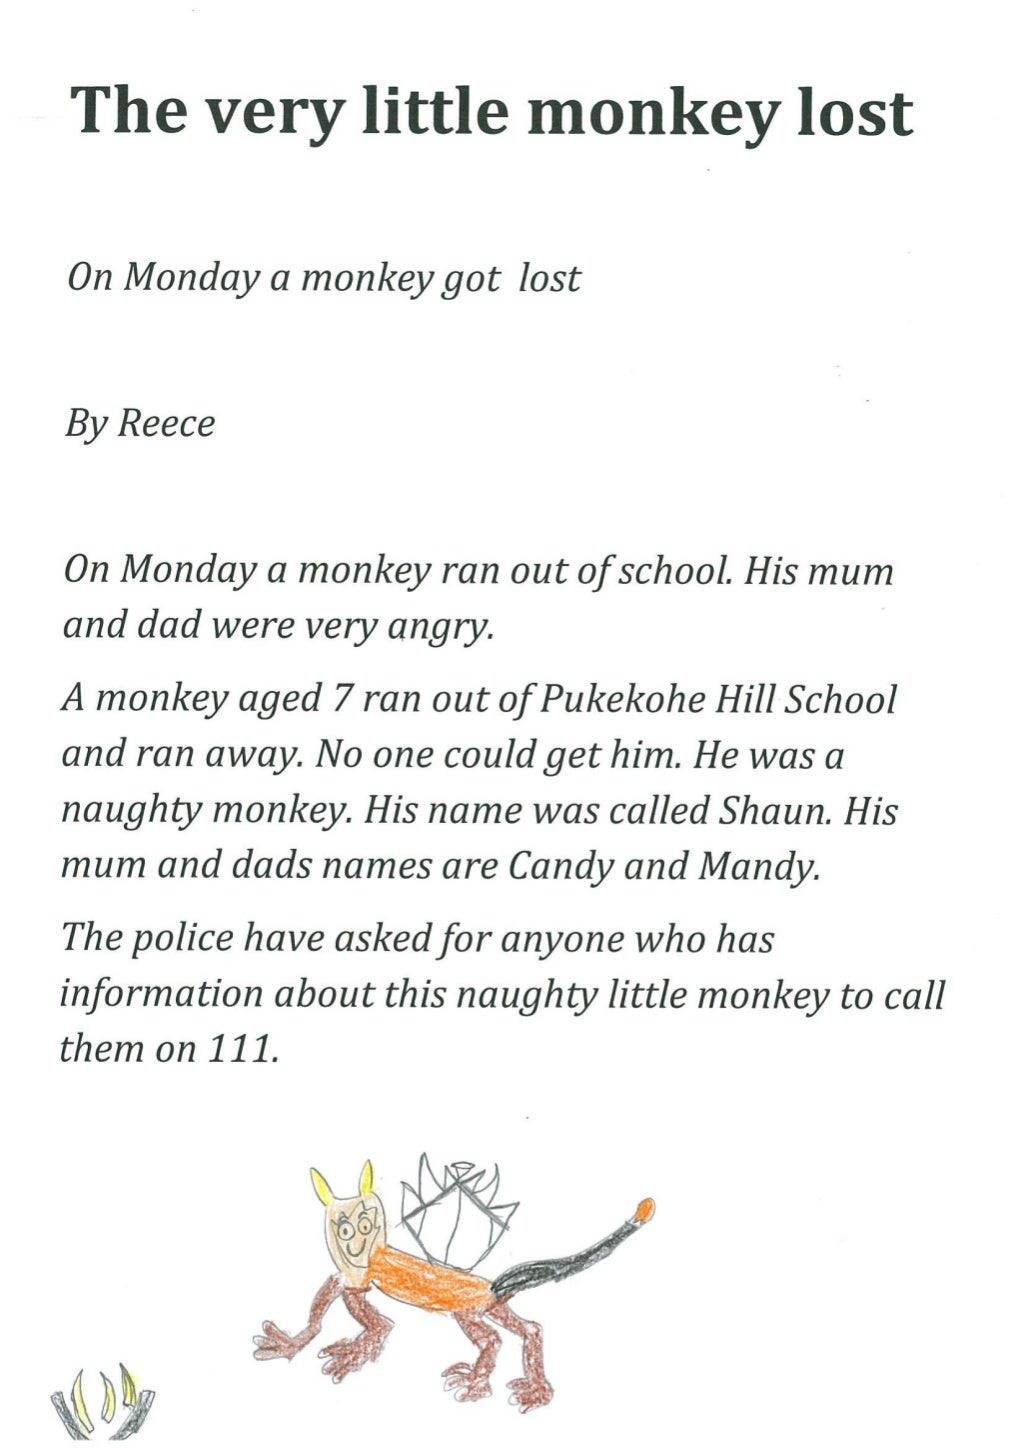 The very little monkey lost
On Monday a monkey got  lost
By Reece
On Monday a monkey ran out of school. His mum
and dad were very angry.
A monkey aged 7 ran out of Pukekohe Hill School
and ran away. No one could get him. He was a
naughty monkey. His name was called Shaun. His
mum and dads names are Candy and Mandy.
The police have asked for anyone who has
information about this naughty little monkey to call
them on 111.